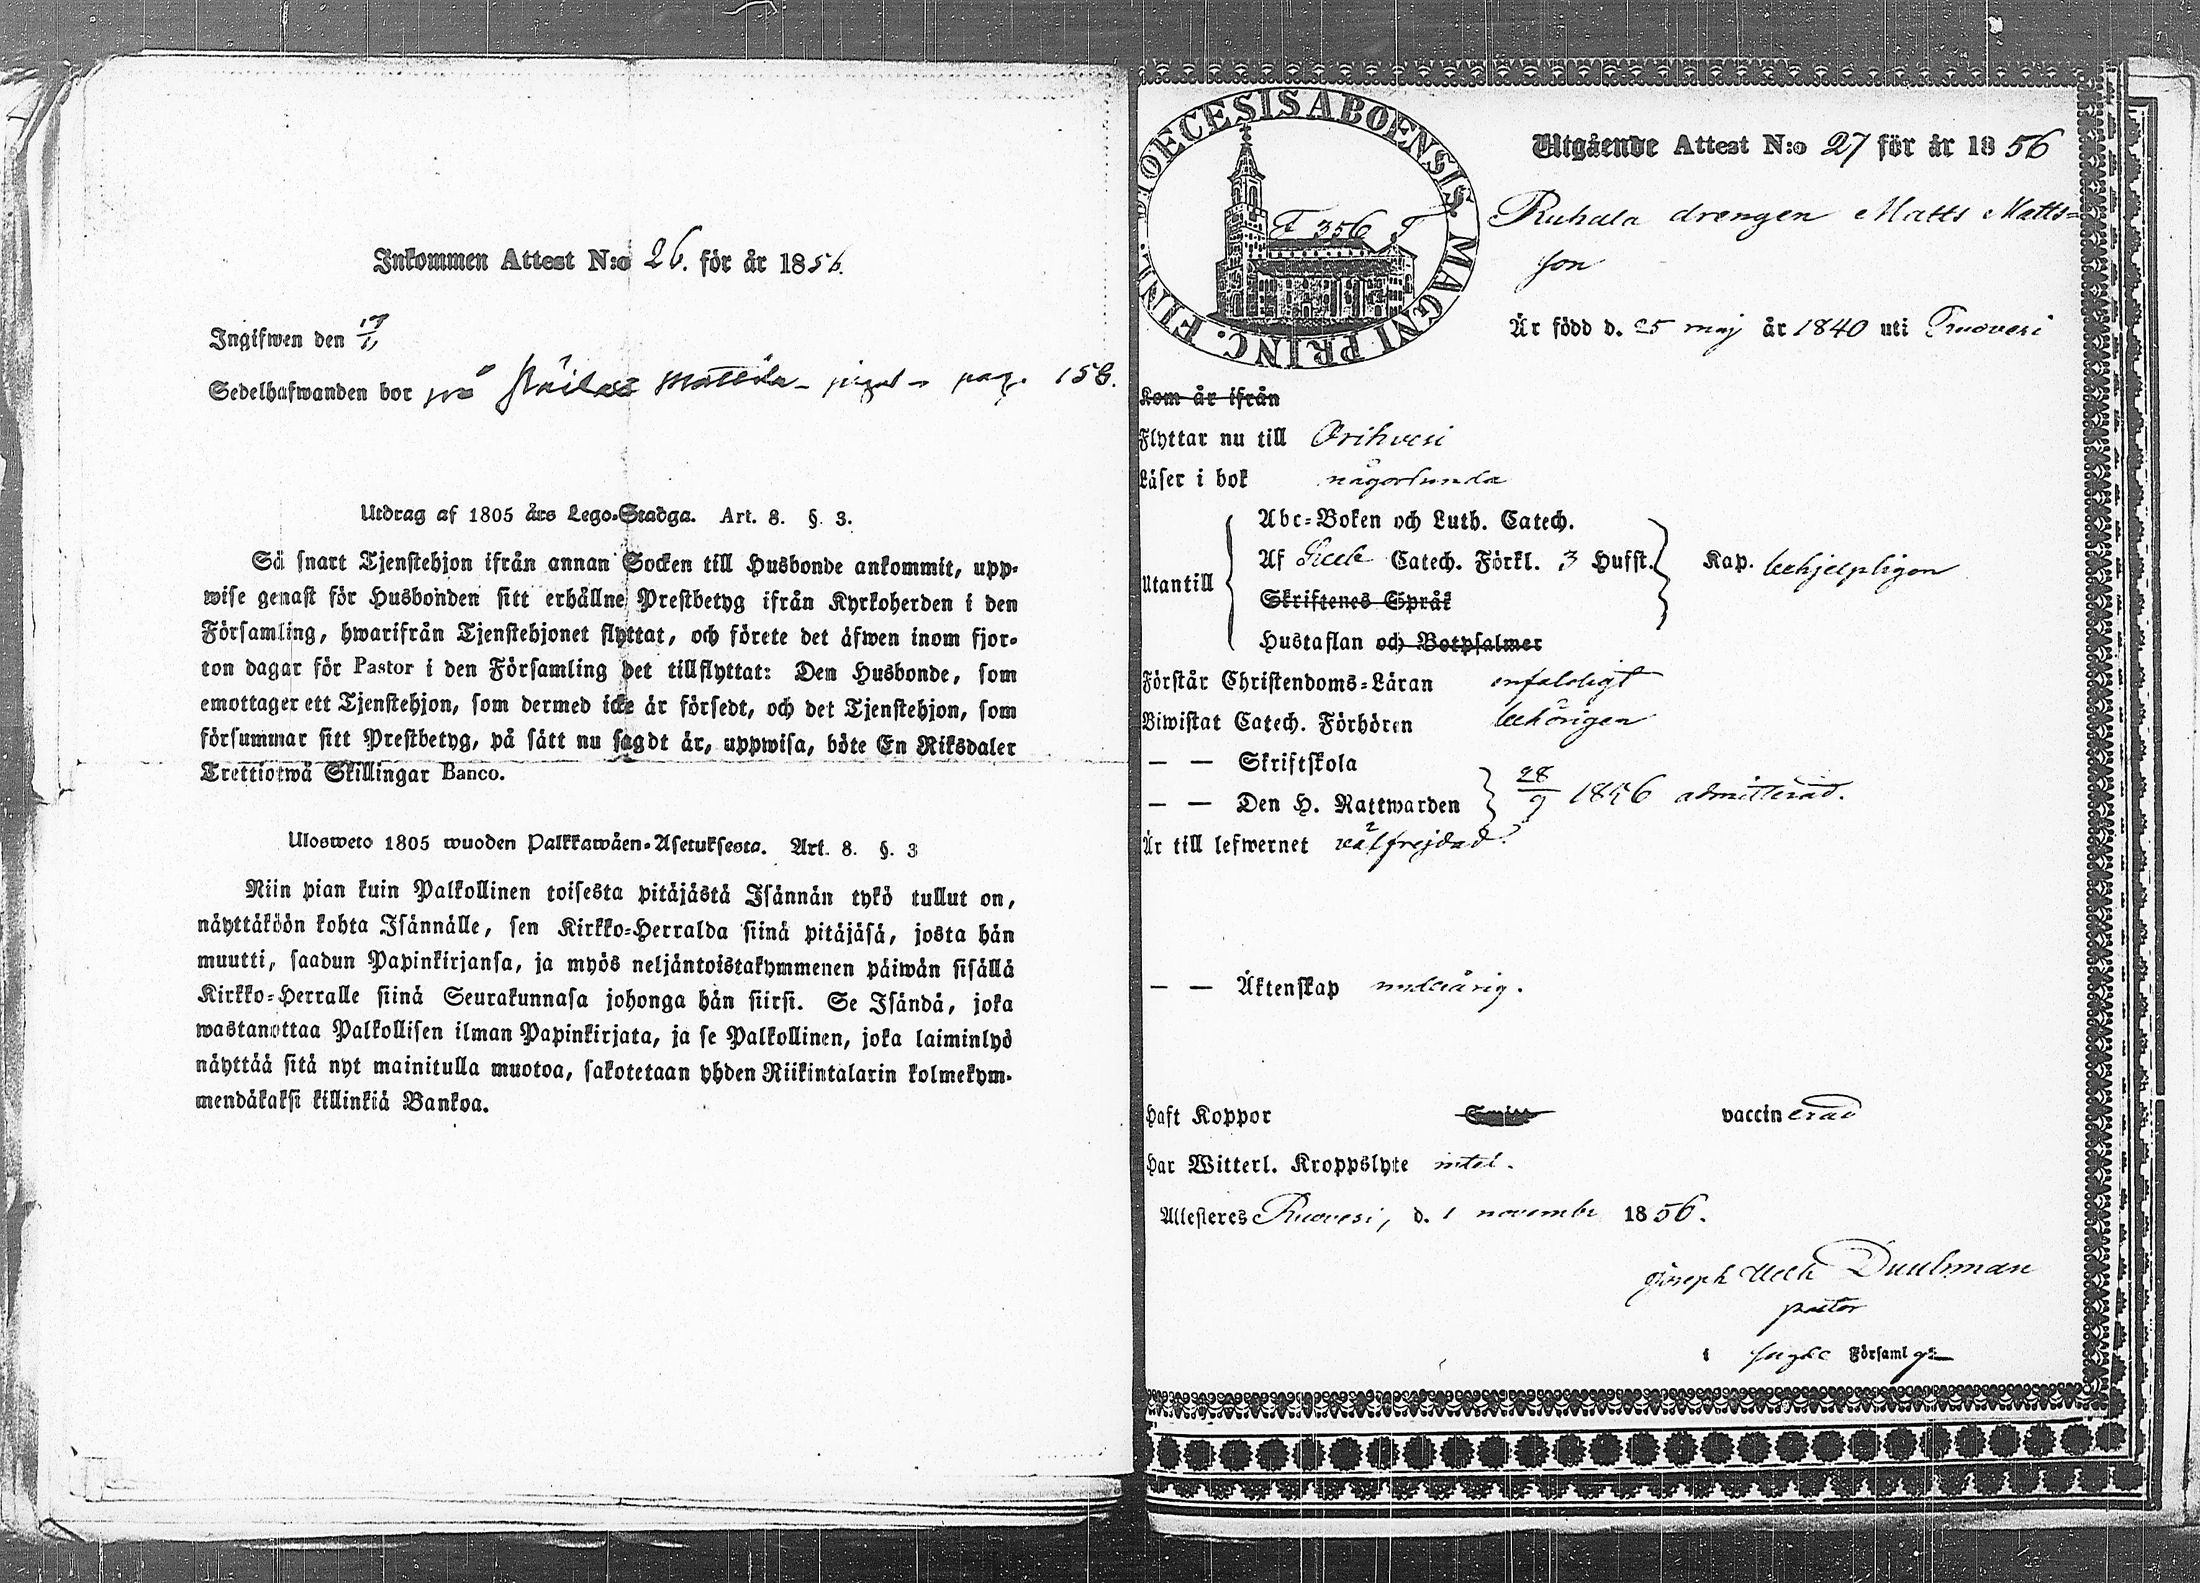 Inkommen Attest N:o 26. för år 1856.
Ingifwen den
Sedelhafwanden bor på Mattila pag. 158.
Utdrag af 1805 års Lego-Stadga. Art. 8. §. 3.
Så snart Tjenstehjon ifrån annan Socken till Husbonde ankommit, upp-
wise genast för Husbonden sitt erhållne Prestbetyg ifrån Kyrkoherden i den
Församling, hwarifrån Tjenstehjonet flyttat, och förete det äfwen inom fjor-
ton dagar för Pastor i den Församling det tillflyttat: Den Husbonde, som
emottager ett Tjenstehjon, som dermed icke är försedt, och det Tjenstehjon, som
försummar sitt Prestbetyg, på sätt nu sagdt är, uppwisa, böte En Riksdaler
Trettiotwå Skillingar Banco.
Ulosweto 1805 wuoden Palkkawäen-Asetuksesta. Art. 8. §. 3
Niin pian kuin Palkollinen toisesta pitäjästä Isännän tykö tullut on,
näyttäköön kohta Isännälle, sen Kirkko-Herralda siinä pitäjäsä, josta hän
muutti, saadun Papinkirjansa, ja myös neljäntoistakymmenen päiwän sisällä
Kirkko-Herralle siinä Seurakunnasa johonga hän siirsi. Se Isändä, joka
wastanottaa Palkollisen ilman Papinkirjata, ja se Palkollinen, joka laiminlyö
näyttää sitä nyt mainitulla muotoa, sakotetaan yhden Riikintalarin kolmekym-
mendäkaksi killinkiä Bankoa.
DIOECESIS ABOENSIS. MAGNI PRINC. FINL.
F 356 F
Utgående Attest N:o 27 för år 1856
Ruhala drengen Matts Matts=
son
Är född d. 25 maj år 1840 uti Ruovesi
Kom år ifrån
Flyttar nu till Orihvesi
Läser i bok någorlunda
Abc-Boken och Luth. Catech.
Utantill Af Catech. Förkl. 3 Hufst. Kap. behjelpligen
Skriftenes Språk
Hustaflan och Botpsalmer
Förstår Christendoms-Läran enfaldigt
Biwistat Catech. Förhören behörigen
— — Skriftskola
— — Den H. Nattwarden 28/9 1856 admitterad.
Är till lefwernet välfrejdad.
— — Äktenskap underårig.
Haft Koppor vaccinerad
Har Witterl. Kroppslyte intet.
Attesteres Ruovesi, d. 1 novembr 1856.
Joseph Duulman
pastor
i Församl